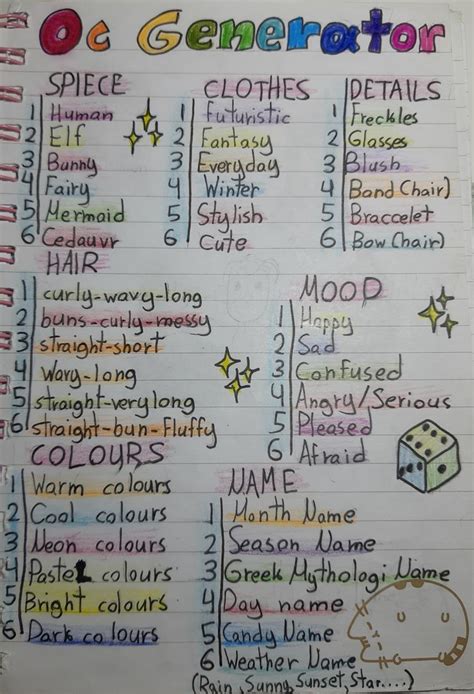 Oc Generator
SPIECE
1 Human
2 Elf
3 Bunny
4 Fairy
5 Mermaid
6 Cedauvr
CLOTHES
1 Futuristic
2 Fantasy
3 Everyday
4 Winter
5 Stylish
6 Cute
DETAILS
1 Freckles
2 Glasses
3 Blush
4 Band (hair)
5 Braccelet
6 Bow (hair)
HAIR
1 curly-wavy-long
2 buns-curly-messy
3 straight-short
4 wavy-long
5 straight-very long
6 straight-bun-fluffy
MOOD
1 Happy
2 Sad
3 Confused
4 Angry/Serious
5 Pleased
6 Afraid
COLOURS
1 Warm colours
2 Cool colours
3 Neon colours
4 Pastel colours
5 Bright colours
6 Dark colours
NAME
1 Month Name
2 Season Name
3 Greek Mythologi Name
4 Day name
5 Candy Name
6 Weather Name
(Rain, Sunny, Sunset, Star....)